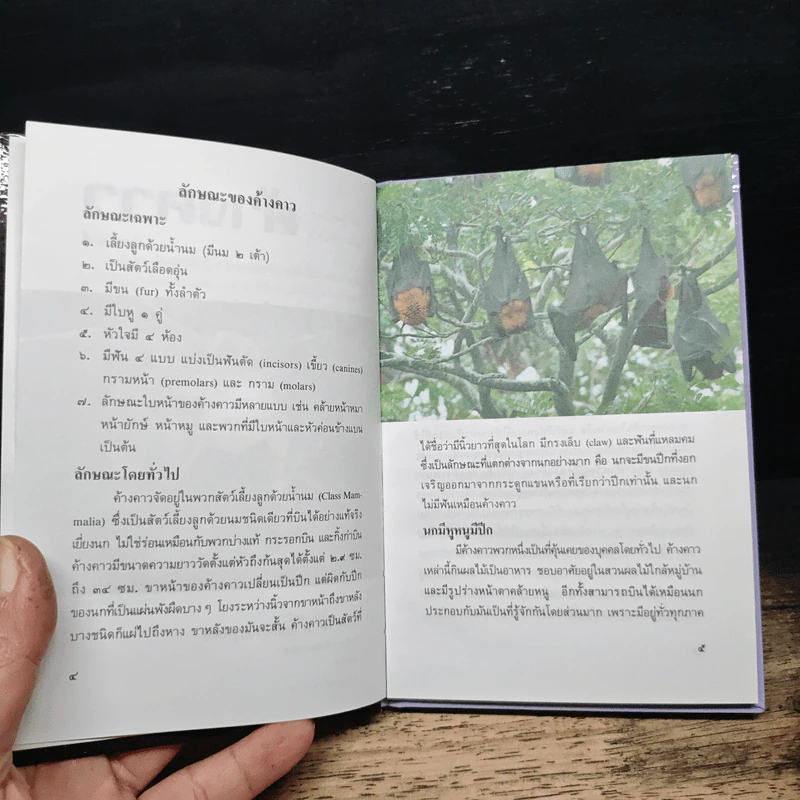 ลักษณะของค้างคาว
ลักษณะเฉพาะ
๑. เลี้ยงลูกด้วยน้ำนม (มีนม ๒ เต้า)
๒. เป็นสัตว์เลือดอุ่น
๓. มีขน (fur) ทั้งลำตัว
๔. มีใบหู ๑ คู่
๕. หัวใจมี ๔ ห้อง
๖. มีฟัน ๔ แบบ แบ่งเป็นฟันตัด (incisors) เขี้ยว (canines)
กรามหน้า (premolars) และ กราม (molars)
๗. ลักษณะใบหน้าของค้างคาวมีหลายแบบ เช่น คล้ายหน้าหมา
หน้ายักษ์ หน้าหมู และพวกที่มีใบหน้าและหัวค่อนข้างแบน
เป็นต้น
ลักษณะโดยทั่วไป
ค้างคาวจัดอยู่ในพวกสัตว์เลี้ยงลูกด้วยน้ำนม (Class Mam-
malia) ซึ่งเป็นสัตว์เลี้ยงลูกด้วยนมชนิดเดียวที่บินได้อย่างแท้จริง
เยี่ยงนก ไม่ใช่ร่อนเหมือนกับพวกบ่างแท้ กระรอกบิน และกิ้งก่าบิน
ค้างคาวมีขนาดความยาววัดตั้งแต่หัวถึงก้นสุดได้ตั้งแต่ ๒.๙ ซม.
ถึง ๓๔ ซม. ขาหน้าของค้างคาวเปลี่ยนเป็นปีก แต่ผิดกับปีก
ของนกที่เป็นแผ่นพังผืดบาง ๆ โยงระหว่างนิ้วจากขาหน้าถึงขาหลัง
บางชนิดก็แผ่ไปถึงหาง ขาหลังของมันจะสั้น ค้างคาวเป็นสัตว์ที่
๔
ได้ชื่อว่ามีนิ้วยาวที่สุดในโลก มีกรงเล็บ (claw) และฟันที่แหลมคม
ซึ่งเป็นลักษณะที่แตกต่างจากนกอย่างมาก คือ นกจะมีขนปีกที่งอก
เจริญออกมาจากกระดูกแขนหรือที่เรียกว่าปีกเท่านั้น และนก
ไม่มีฟันเหมือนค้างคาว
นกมีหูหนูมีปีก
มีค้างคาวพวกหนึ่งเป็นที่คุ้นเคยของบุคคลโดยทั่วไป ค้างคาว
เหล่านี้กินผลไม้เป็นอาหาร ชอบอาศัยอยู่ในสวนผลไม้ใกล้หมู่บ้าน
และมีรูปร่างหน้าตาคล้ายหนู อีกทั้งสามารถบินได้เหมือนนก
ประกอบกับมันเป็นที่รู้จักกันโดยส่วนมาก เพราะมีอยู่ทั่วทุกภาค
๕